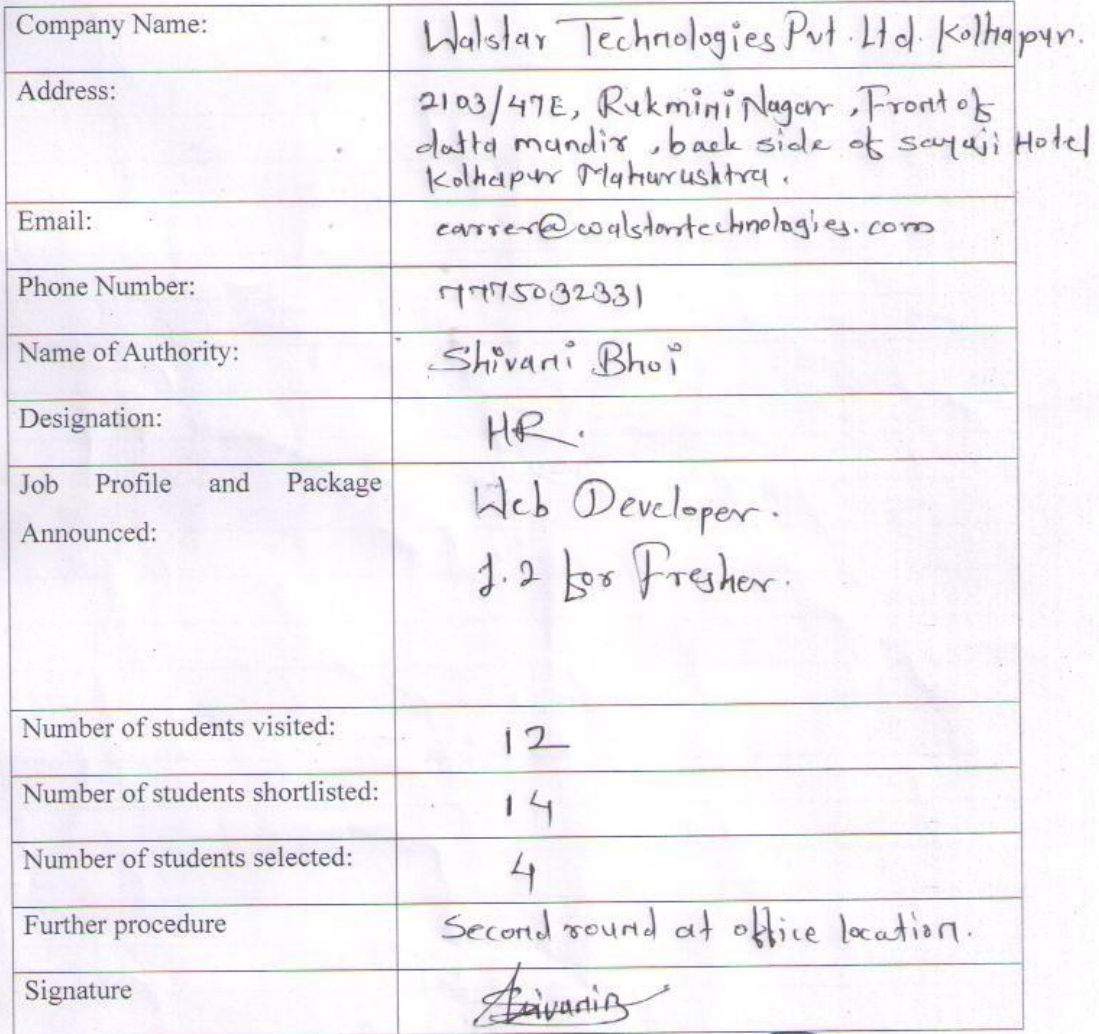 Company Name: Walstar Technologies Pvt. Ltd. Kolhapur.
Address: 2103/47E, Rukmini Nagar, Front of
datta mandir, back side of sayaji Hotel
Kolhapur Maharashtra.
Email: carrer@walstartechnologies.com
Phone Number: 7775032331
Name of Authority: Shivani Bhoi
Designation: HR.
Job Profile and Package Web Developer.
Announced:
1.2 for Fresher.
Number of students visited: 12
Number of students shortlisted: 14
Number of students selected: 4
Further procedure Second round at office location.
Signature ShivaniB